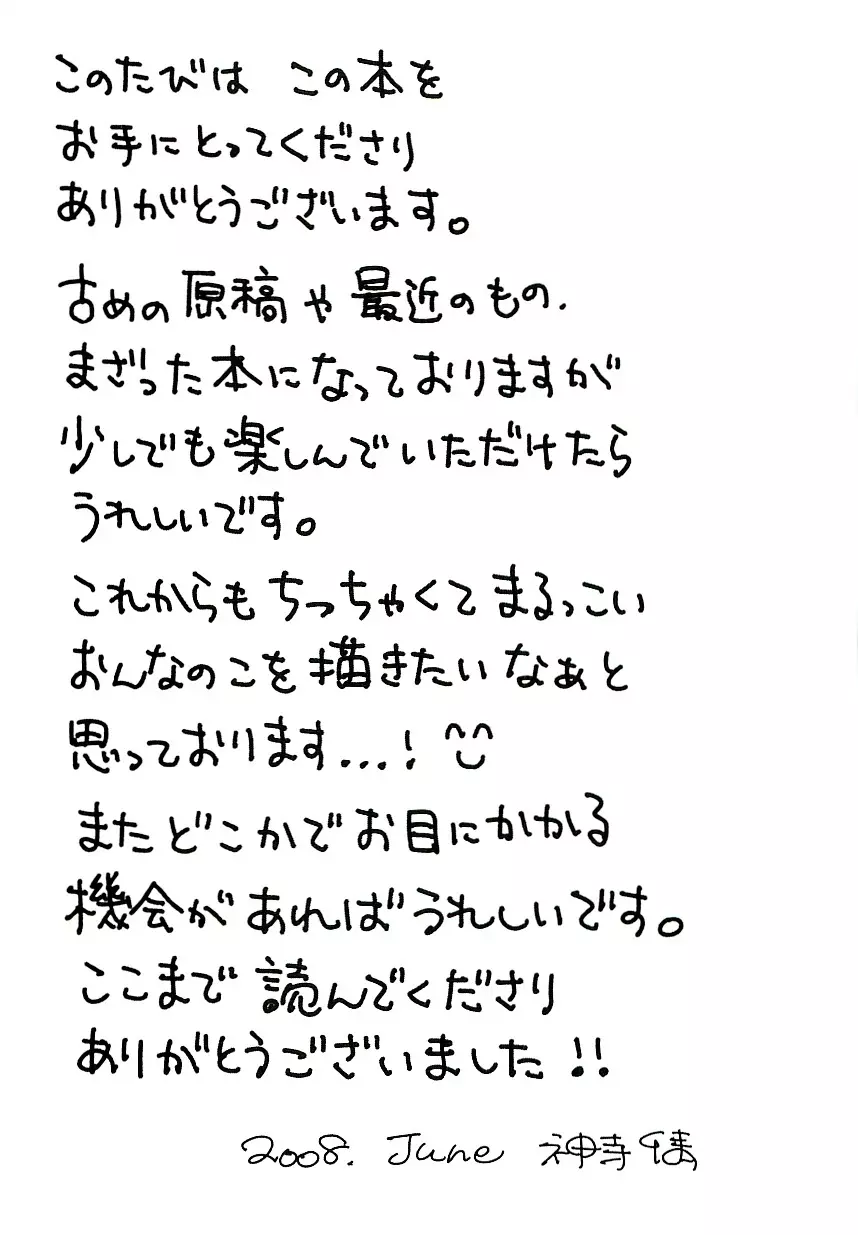 このたびは この本を
お手にとってくださり
ありがとうございます。
古めの原稿や最近のもの.
まざった本になっておりますが
少しでも楽しんでいただけたら
うれしいです。
これからもちっちゃくてまるっこい
おんなのこを描きたいなぁと
思っております...!
またどこかでお目にかかる
機会があればうれしいです。
ここまで読んでくださり
ありがとうございました!!
2008. June 神寺